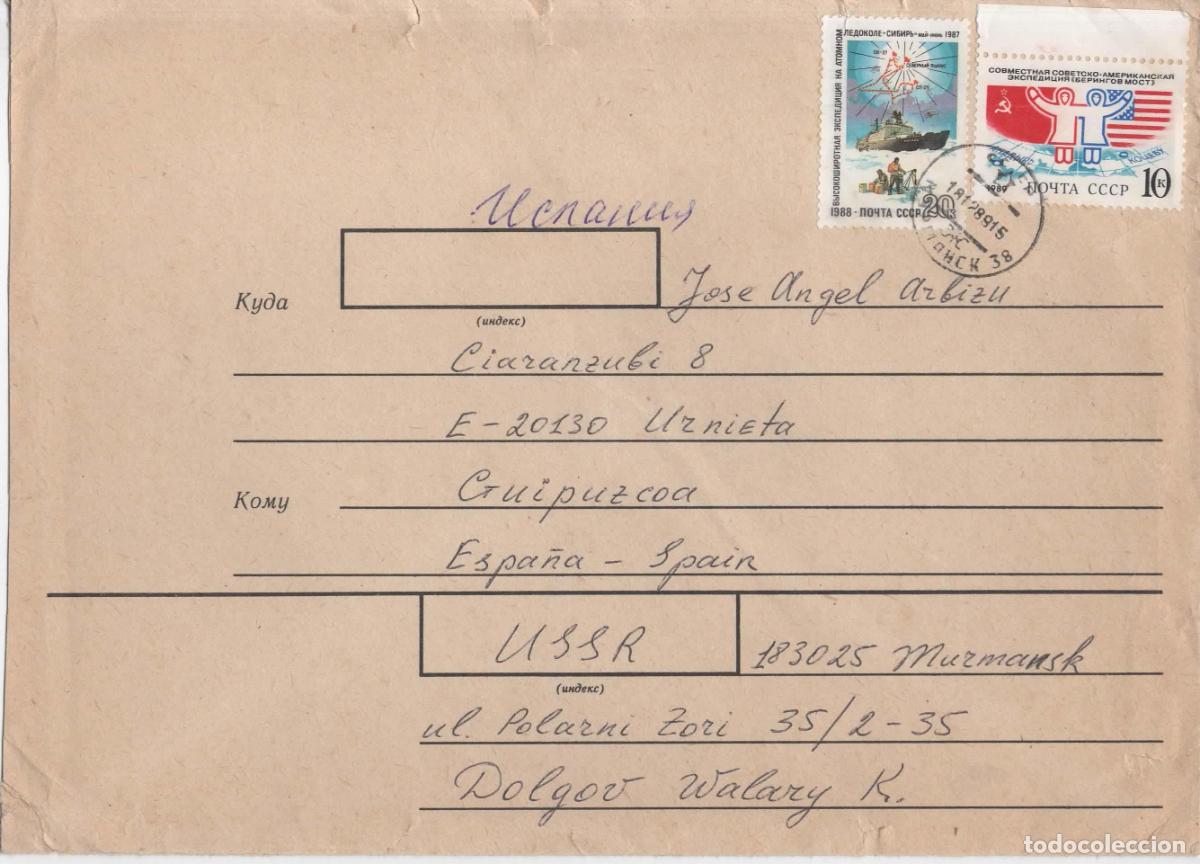 ВЫСОКОШИРОТНАЯ ЭКСПЕДИЦИЯ НА АТОМНОМ
ЛЕДОКОЛЕ «СИБИРЬ» МАЙ-ИЮНЬ 1987
СП-27
СЕВЕРНЫЙ ПОЛЮС
СП-29
1988 · ПОЧТА СССР 20 к
СОВМЕСТНАЯ СОВЕТСКО-АМЕРИКАНСКАЯ
ЭКСПЕДИЦИЯ (БЕРИНГОВ МОСТ)
АНАДЫРЬ
КОЦЕБУ
1989 ПОЧТА СССР 10 к
18128915
38
Испания
Куда
Jose Angel Arbizu
(индекс)
Ciaranzubi 8
E-20130 Urnieta
Кому
Guipuzcoa
España - Spain
USSR
183025 Murmansk
(индекс)
ul. Polarni Zori 35/2-35
Dolgov Walary K.
todocoleccion